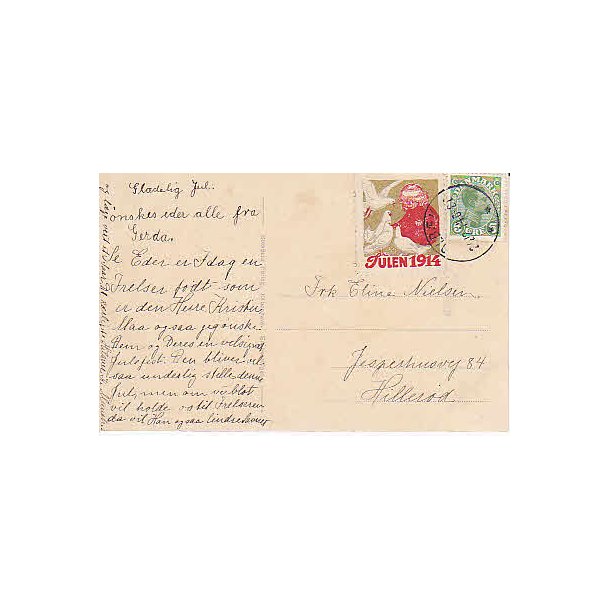 Glædelig Jul.
ønskes eder alle fra
Gerda.
Se Eder er Idag en
Frelser født som
er den Herre Kristus
Maa ogsaa jeg onske
Dem og Deres en velsignet
Julefest. Den bliver vel
saa underlig stille denne
Jul, men om vi blot
vil holde os til Frelseren
da vil Han ogsaa lindre Savnet
JULEN 1914
DANMARK
5
Frk Eline Nielsen
Jespershusvej 84
Hillerød